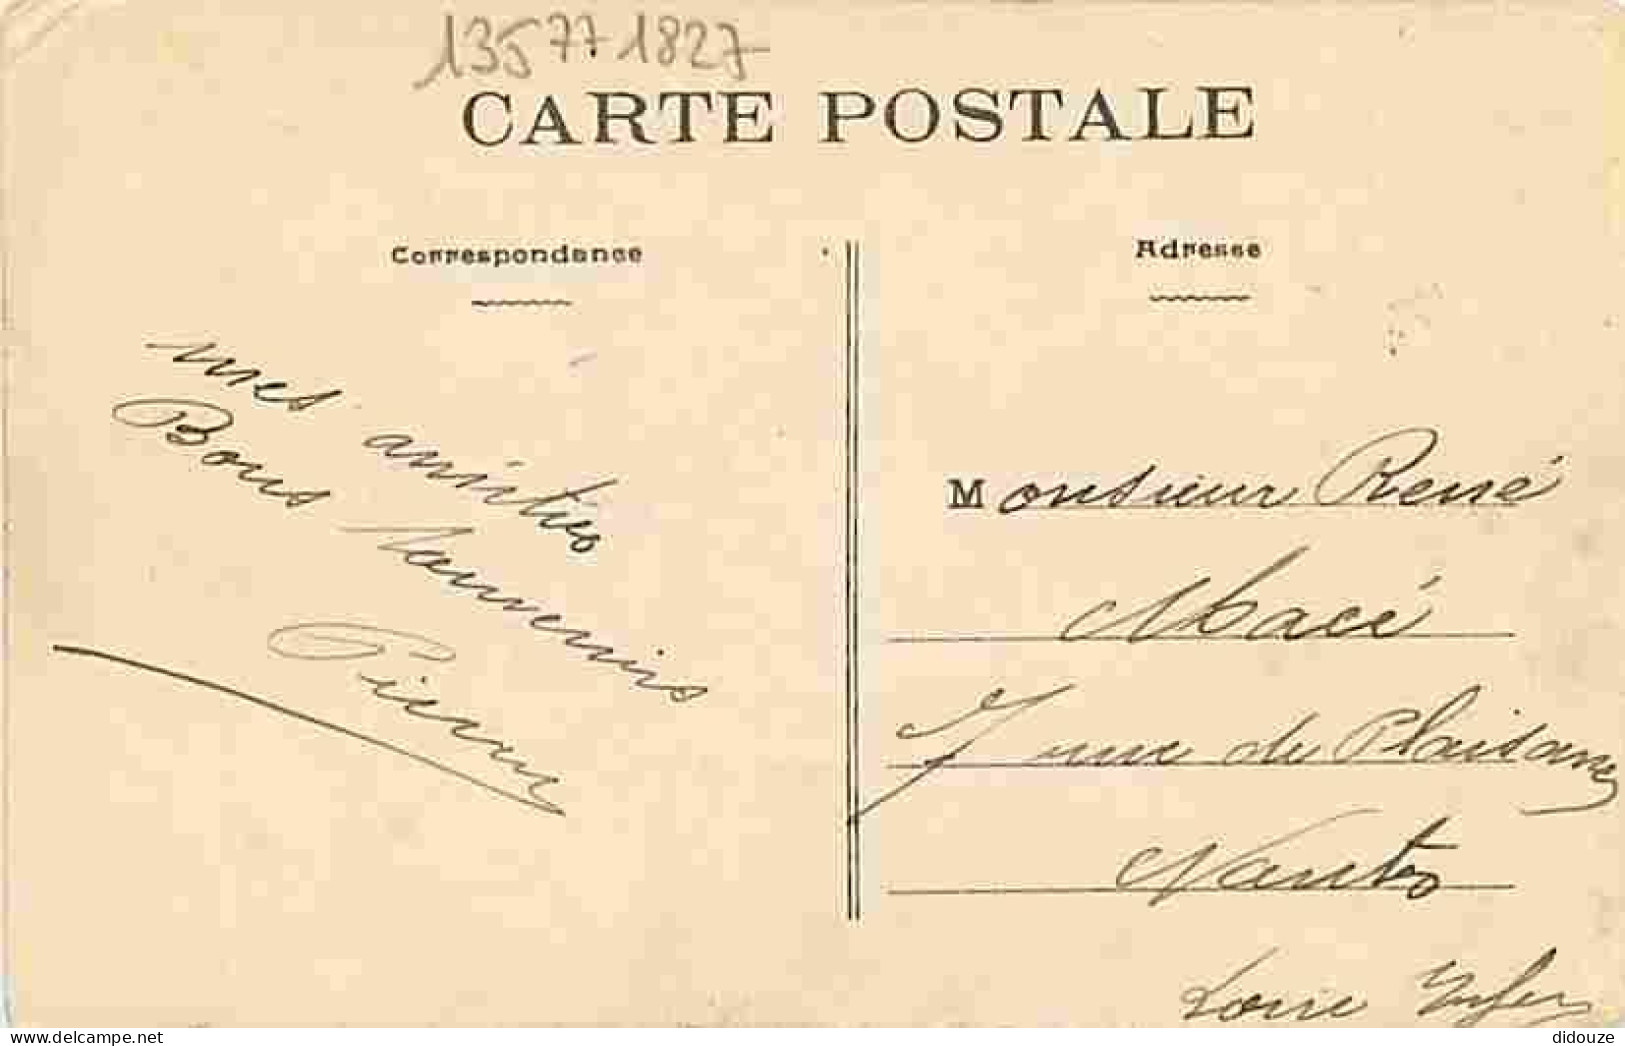 135771827
CARTE POSTALE
Correspondance
mes amitiés
Bons Souvenirs
Pierre
Adresse
Monsieur René
Macé
7 rue de Plaisance
Nantes
Loire Infer
didouze